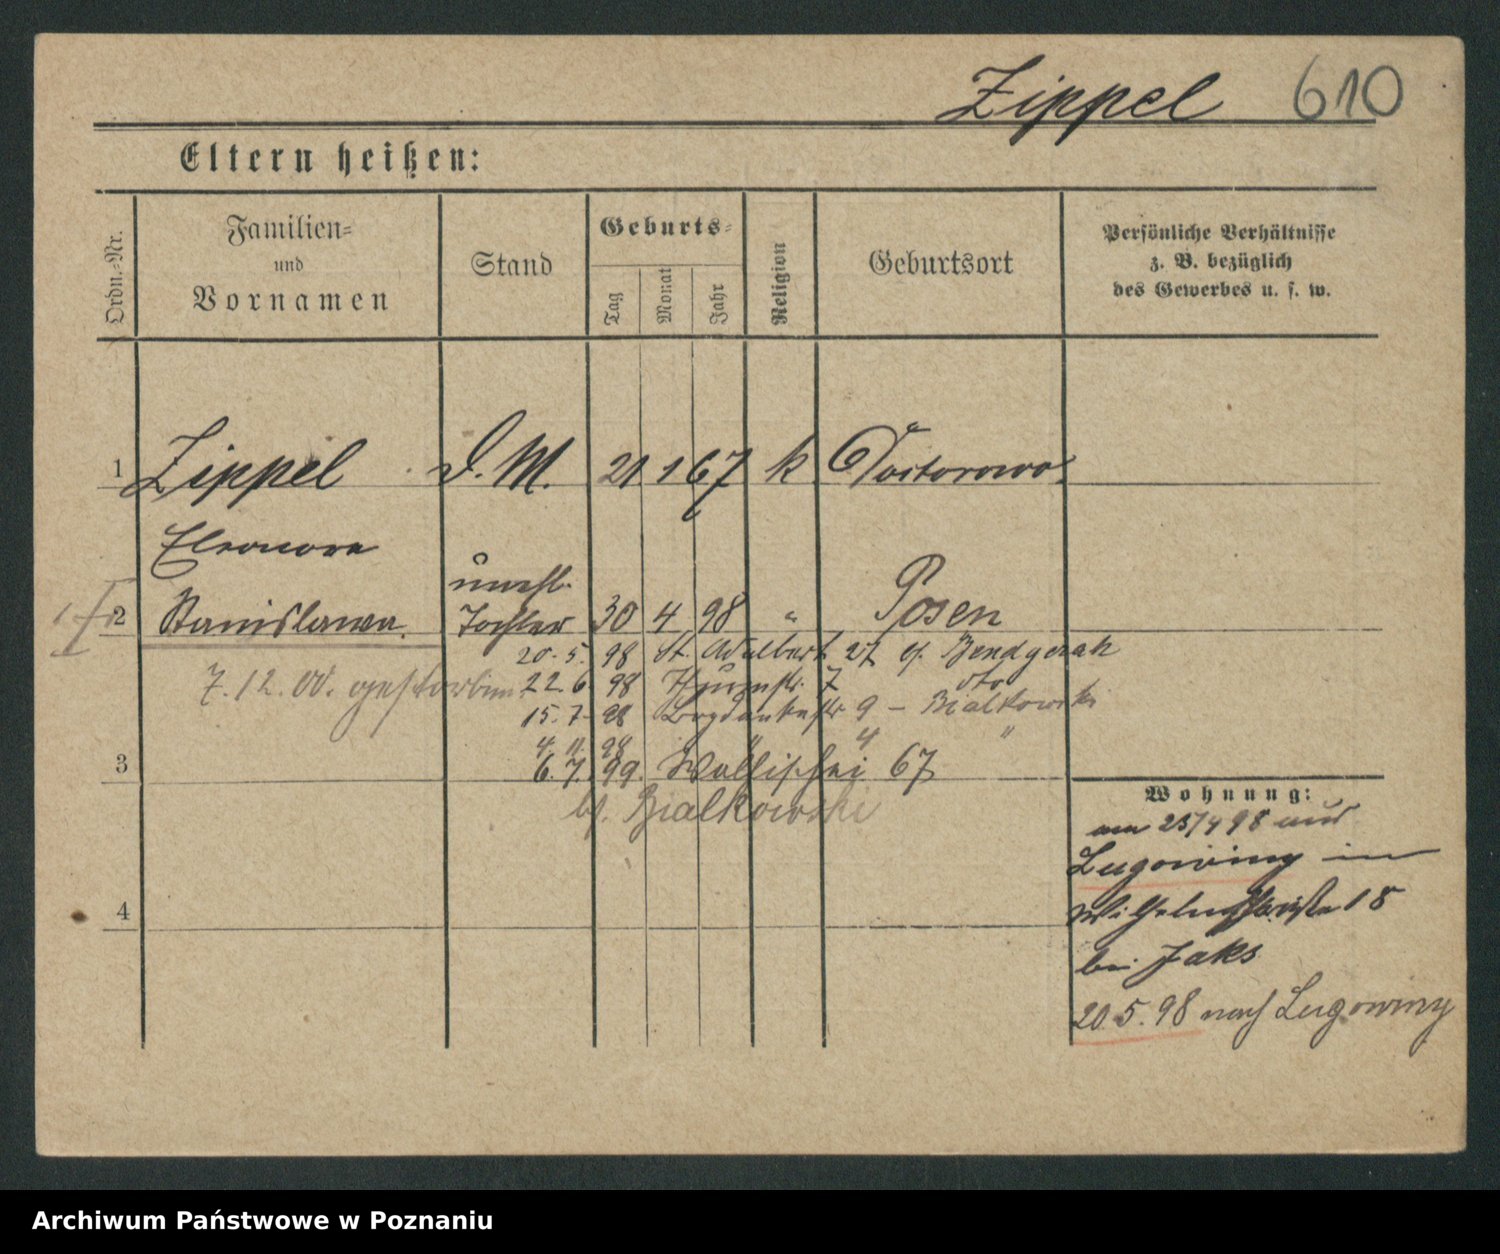 Zippel 610
Eltern heißen:
Ordn.-Nr.
Familien-
und
Vornamen
Stand
Geburts-
Tag
Monat
Jahr
Religion
Geburtsort
Persönliche Verhältnisse
z. B. bezüglich
des Gewerbes u. s. w.
1 Zippel D. M. 21 1 67 k
Eleonore
unehl.
2 Stanislawa Tochter 30 4 98 " Posen
20. 5. 98 St. Adalbert 27
7. 12. 00. gestorben 22 6. 98 7 dto
15. 7. 98 Bogdankastr 9 – Bialkowski
4. 11. 98 " " 4 "
3 6. 7. 99. Wallischei 67
bf. Bialkowski
4
Wohnung:
am 25/4 98 aus
Lugowiny in
Wilhelmstraße 18
bei Jaks
20. 5. 98 nach Lugowiny
Archiwum Państwowe w Poznaniu